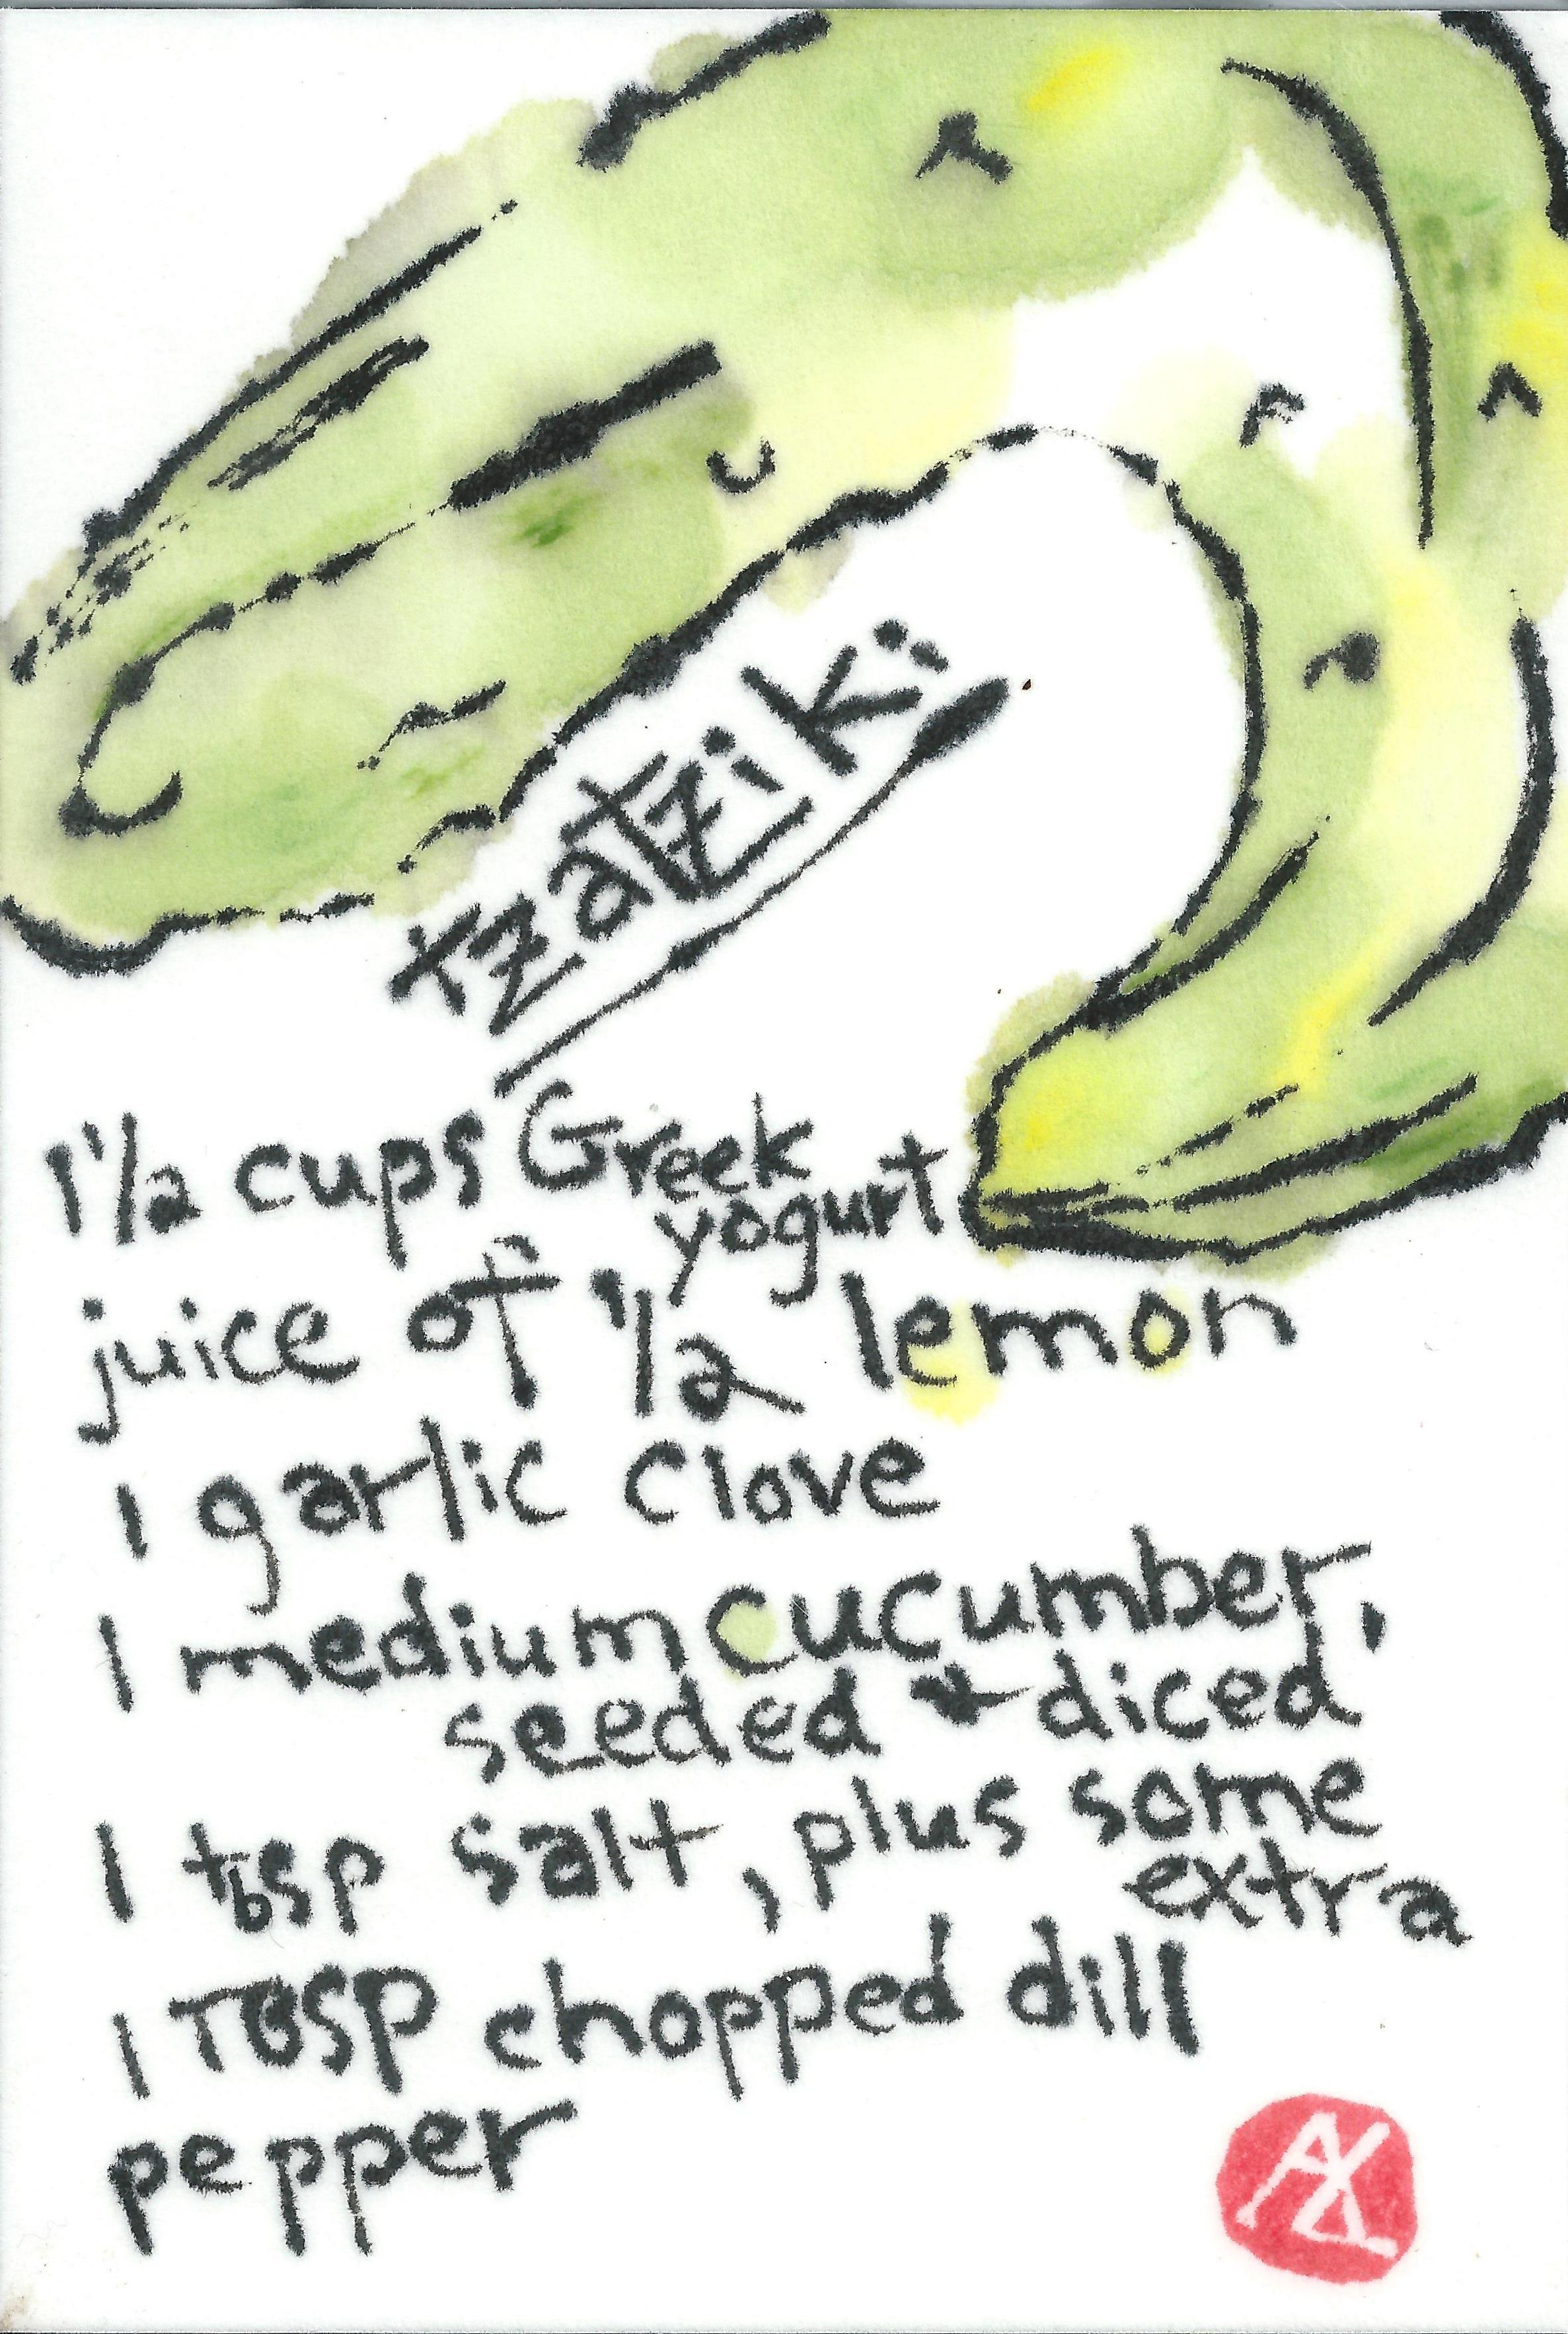 tzatziki:
1 1/2 cups Greek
yogurt
juice of 1/2 lemon
1 garlic clove
1 medium cucumber,
seeded & diced
1 tbsp salt, plus some
extra
1 TBSP chopped dill
pepper